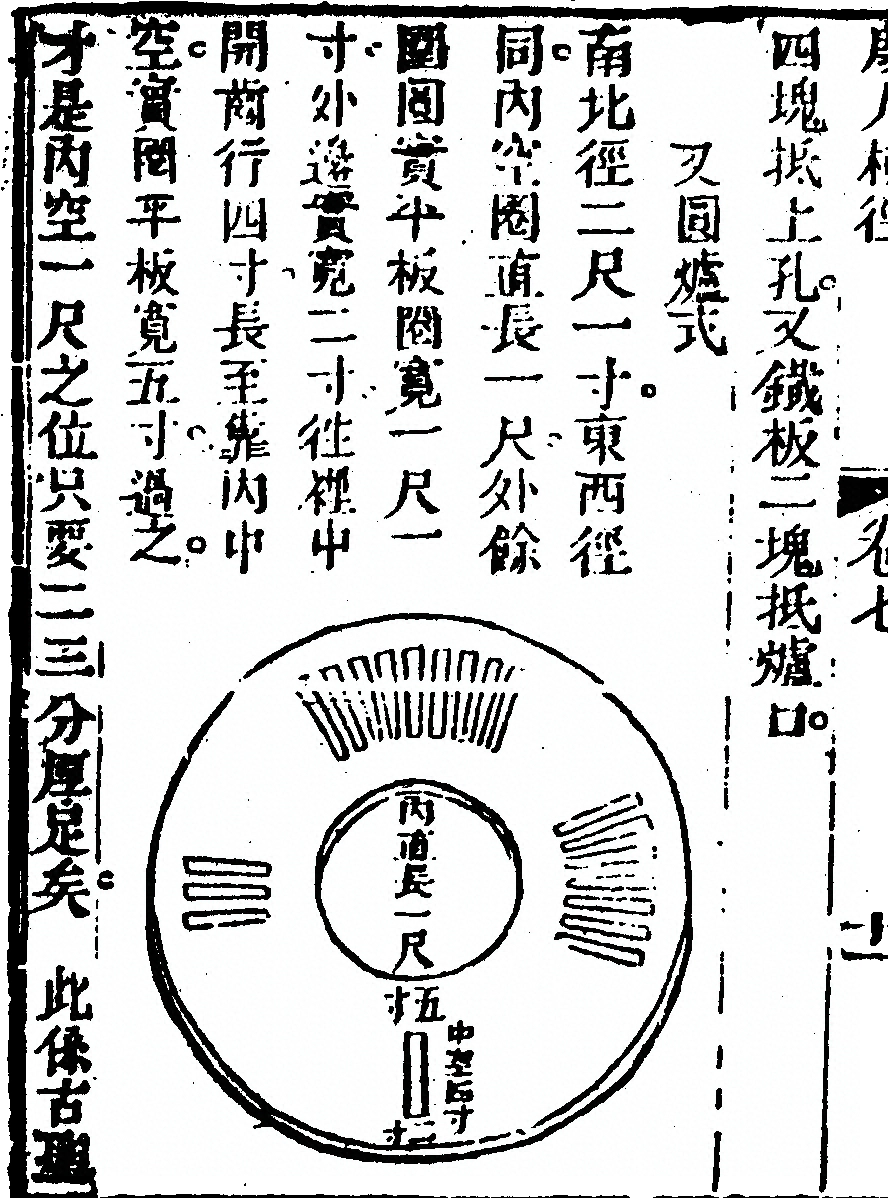 卷七
四塊抵上孔。又鐵板二塊抵爐口。
又圓爐式
南北徑二尺一寸。東西徑
同。內空圈直長一尺。外餘
圍圓實平板圈寬一尺一
寸。外邊實寬二寸。往裡中
開齒行四寸長至靠內中
空。實圈平板寬五寸。過之。
才是內空一尺之位只要二三分厚足矣。 此係古聖
內直長一尺
五寸
中空四寸
二寸